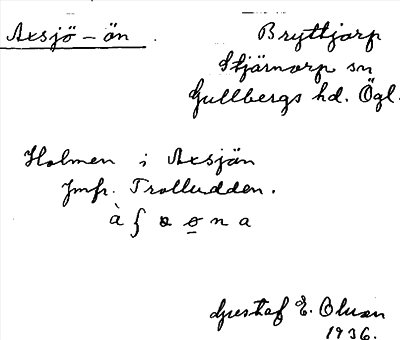 Axsjö-ön.
Bryttjorp
Stjärnorp sn
Gullbergs hd. Ögl.
Holmen i Axsjön
Jmfr. Trolludden.
Gustaf E. Olsson
1936.